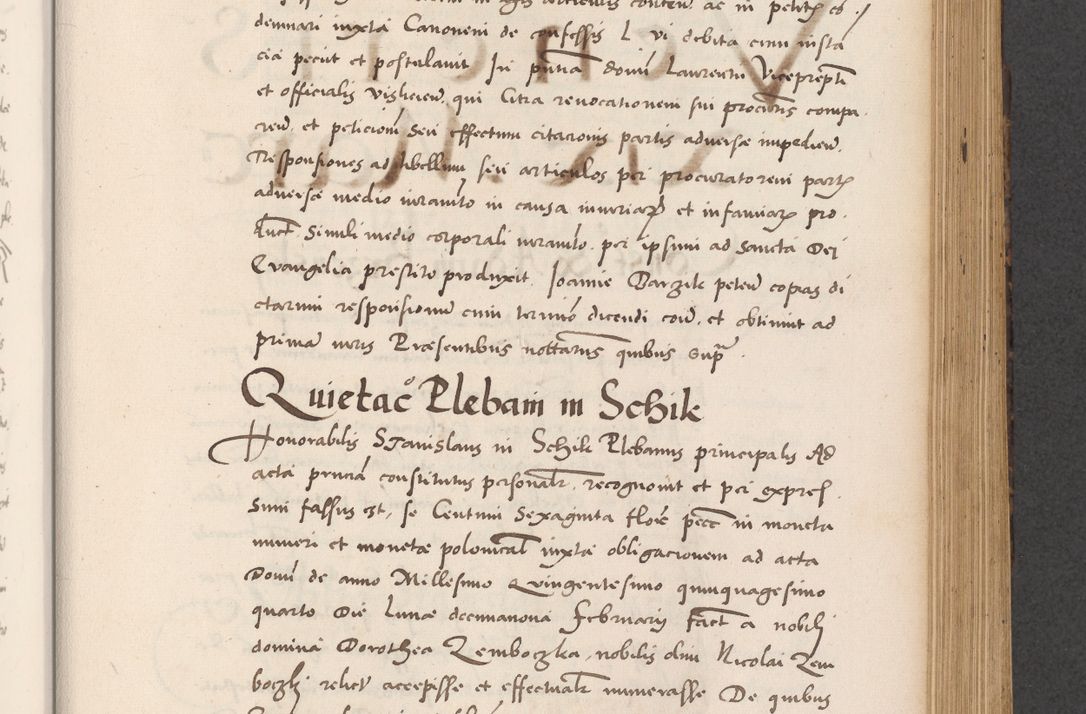 demnari iuxta Canonem de confessis L vi debita cum insta
cia peciit et postulavit In pntia domi Laurentii Viceprepti
et officialis vislicien qui Citra revocationem sui procuris compa
ren et peticioni seu effectum citacionis partis adversæ impedien
Responsiones ad libellum seu articulos per procuratorem partis
adversæ medio iuramto in causa iniuriar et infamiar pro
duct Simili medio corporali iuramto per ipsum ad Sancta Dei
Evangelia prestito produxit Ioanne Barzik peten copias di
ctarum responsionum cum termino dicendi con et obtinuit ad
prima iuris Præsentibus nottariis quibus supra
Quietaco Plebani in Schik
Honorabilis Stanislaus in Schik Plebanus principalis Ad
acta pruncia constitutus personalr, recognovit et per expres
sum fassus est, se Centum Sexaginta flore pecc in moneta
numeri et monetæ polonicali iuxta obligacionem ad acta
Domi de anno Millesimo Quingentesimo quinquagesimo
quarto Die Lunæ decimanona Februarii fact a nobili
domina Dorothea Zemboczka, nobilis olim Nicolai Zem
boczki relict accepisse et effectualr numerasse De quibus